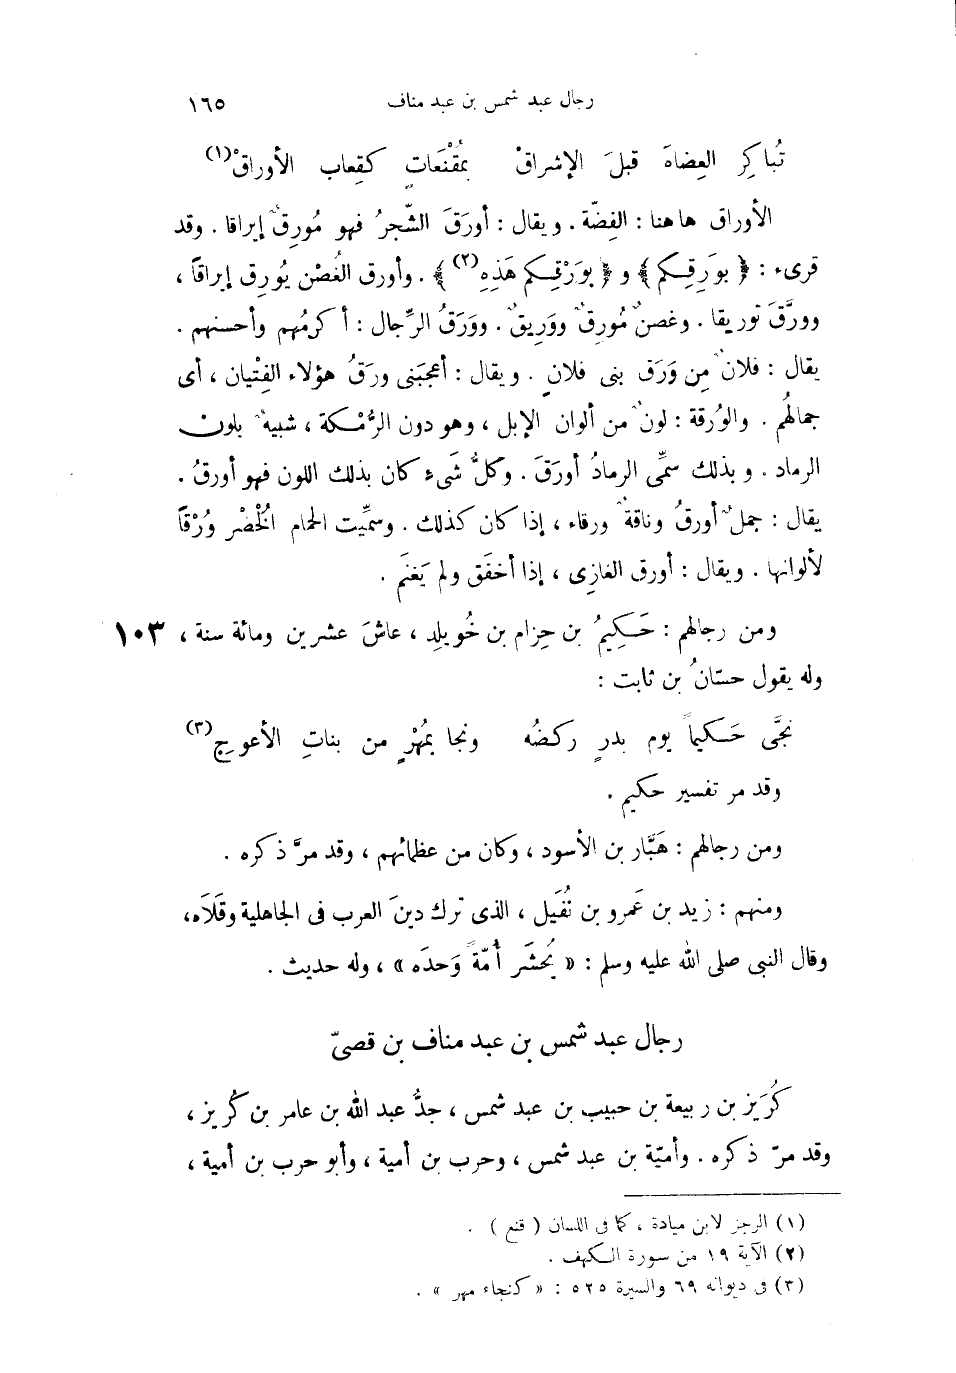 رجال عبد شمس بن عبد مناف ١٦٥
تُباكِر العِضاهَ قبلَ الإشراقْ بمُقْنَعاتٍ كقِعاب الأوراقْ(١)
الأوراق هاهنا : الفِضّة . ويقال : أورَقَ الشّجرُ فهو مُورِقٌ إيراقا . وقد
قرىء : ﴿ بوَرِقِكم ﴾ و ﴿ بوَرْقِكم هَذِهِ(٢) ﴾ . وأورق الغُصْن يُورِق إيراقاً ،
وورَّقَ توريقا . وغصنٌ مُورِقٌ ووَرِيقٌ . ووَرَقُ الرِّجال : أكرمُهم وأحسنهم .
يقال : فلانٌ مِن وَرَق بنى فلانٍ . ويقال : أعجبَنى ورَقُ هؤلاء الفِتْيان ، أى
جمالُهم . والوُرقة : لونٌ من ألوان الإبل ، وهو دون الرُّمْكة ، شبيهٌ بلون
الرماد . وبذلك سمِّى الرمادُ أورَقَ . وكلُّ شَىء كان بذلك اللون فهو أورقُ .
يقال : جملٌ أورقُ وناقةٌ ورقاء ، إذا كان كذلك . وسمِّيت الحمام الخُضْر وُرْقاً
لألوانها . ويقال : أورق الغازِى ، إذا أخفَق ولم يَغنَم .
ومن رجالهم : حَكِيمُ بن حِزام بن خُويلِد ، عاشَ عشرين ومائة سنة ، ١٠٣
وله يقول حسّانُ بن ثابت :
نجَّى حَكيماً يوم بدرٍ ركضُه ونجا بمُهْرٍ من بناتِ الأعوجِ(٣)
وقد مر تفسير حكيم .
ومن رجالهم : هَبَّار بن الأسود ، وكان من عظمائهم ، وقد مرَّ ذكره .
ومنهم : زيد بن عَمرو بن نُفَيل ، الذى ترك دينَ العرب فى الجاهلية وقَلَاه،
وقال النبى صلى الله عليه وسلم : « يُحشَر أُمّةً وَحدَه » ، وله حديث .
رجال عبد شمس بن عبد مناف بن قصىّ
كُرَيز بن ربيعة بن حبيب بن عبد شمس ، جدُّ عبد الله بن عامر بن كُريز ،
وقد مرّ ذكره . وأميّة بن عبد شمس ، وحرب بن أمية ، وأبو حرب بن أمية ،
(١) الرجز لابن ميادة ، كما فى اللسان ( قنع ) .
(٢) الآية ١٩ من سورة الكهف .
(٣) فى ديوانه ٦٩ والسيرة ٥٢٥ : « كنجاء مهر » .